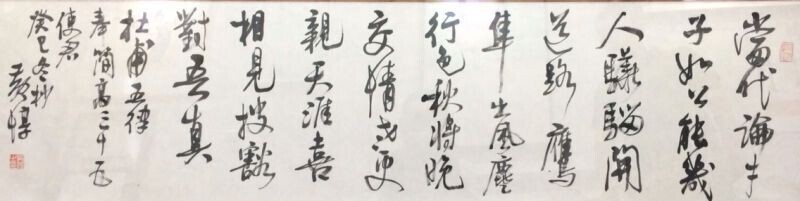 當代論才
子如公能幾
人驊騮開
道路鷹
隼出風塵
行色秋將晚
交情老更
親天涯喜
相見披豁
對吾真
杜甫五律
奉簡高三十五
使君
癸巳冬杪
黃惇